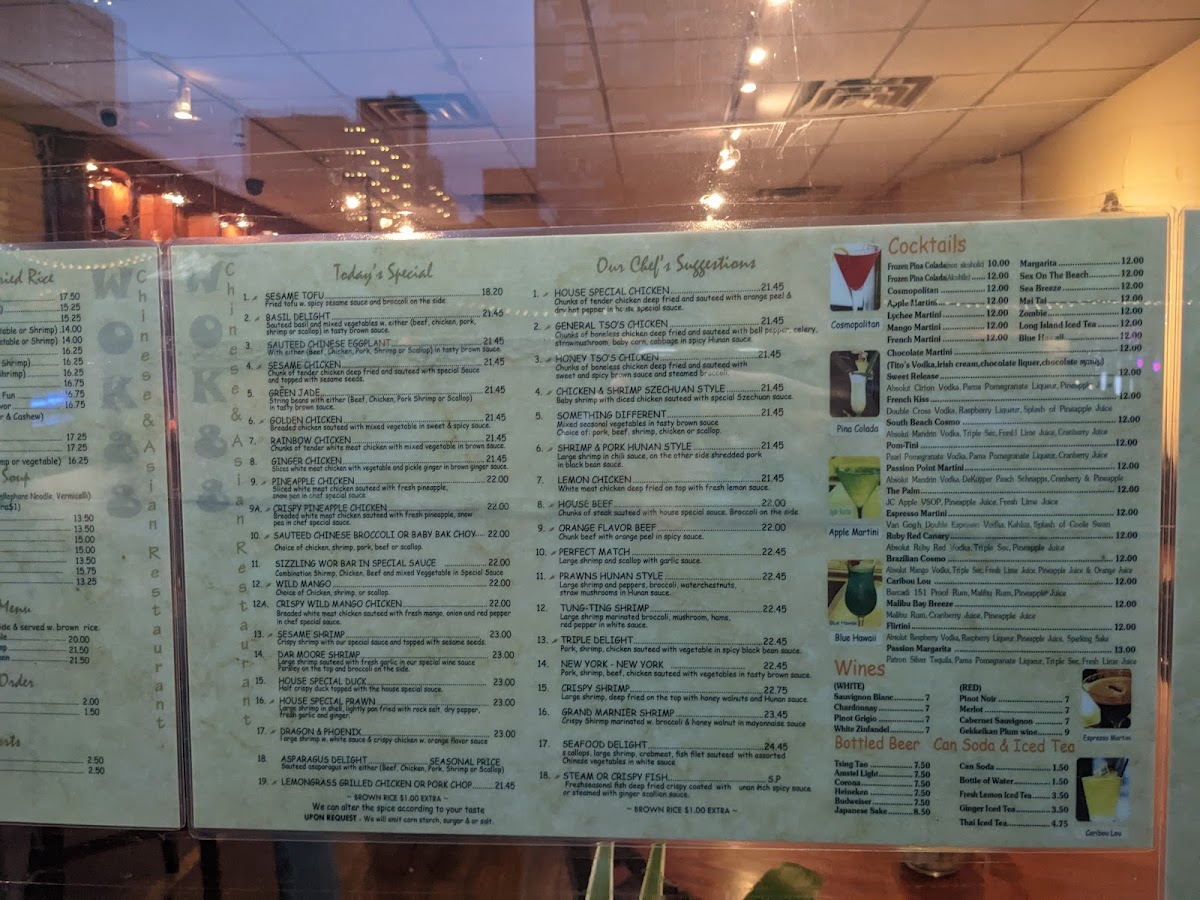 ried Rice
17.50
15.25
15.25
table or Shrimp) .14.00
etable or Shrimp) 14.00
16.25
Shrimp) 16.25
Shrimp) 16.25
16.75
Fun 16.75
vor 16.75
r & Cashew)
17.25
17.25
mp or vegetable) 16.25
Soup
ellophane Noodle, Vermicelli)
13.50
13.50
15.00
15.00
13.50
15.75
13.25
Menu
ide & served w. brown rice.
20.00
21.50
21.50
Order
2.00
1.50
2.50
2.50
WOK 88
Chinese & Asian Restaurant
WOK 88
Chinese & Asian Restaurant
Today's Special
1. SESAME TOFU 18.20
Fried tofu w. spicy sesame sauce and broccoli on the side.
2. BASIL DELIGHT 21.45
Sauteed basil and mixed vegetables w. either (beef, chicken, pork,
shrimp or scallop) in tasty brown sauce.
3. SAUTEED CHINESE EGGPLANT 21.45
With either (Beef, Chicken, Pork, Shrimp or Scallop) in tasty brown sauce.
4. SESAME CHICKEN 21.45
Chunk of tender chicken deep fried and sauteed with special Sauce
and topped with sesame seeds.
5. GREEN JADE 21.45
String beans with either (Beef, Chicken, Pork Shrimp or Scallop)
in tasty brown sauce.
6. GOLDEN CHICKEN 21.45
Breaded chicken sauteed with mixed vegetable in sweet & spicy sauce.
7. RAINBOW CHICKEN 21.45
Chunks of tender white meat chicken with mixed vegetable in brown sauce.
8. GINGER CHICKEN 21.45
Slices white meat chicken with vegetable and pickle ginger in brown ginger sauce.
9. PINEAPPLE CHICKEN 22.00
Sliced white meat chicken sauteed with fresh pineapple,
snow pea in chef special sauce.
9A. CRISPY PINEAPPLE CHICKEN 22.00
Breaded white meat chicken sauteed with fresh pineapple, snow
pea in chef special sauce.
10. SAUTEED CHINESE BROCCOLI OR BABY BAK CHOY 22.00
Choice of chicken, shrimp, pork, beef or scallop.
11. SIZZLING WOR BAR IN SPECIAL SAUCE 22.00
Combination Shrimp, Chicken, Beef and mixed Veggetable in Special Sauce
12. WILD MANGO 22.00
Choice of Chicken, Shrimp, or Scallop.
12A. CRISPY WILD MANGO CHICKEN 22.00
Breaded white meat chicken sauteed with fresh mango, onion and red pepper
in chef special sauce.
13. SESAME SHRIMP 23.00
Crispy shrimp with our special sauce and topped with sesame seeds.
14. DAR MOORE SHRIMP 23.00
Large shrimp sauteed with fresh garlic in our special wine sauce
Parsley on the top and broccoli on the side.
15. HOUSE SPECIAL DUCK 23.00
Half crispy duck topped with the house special sauce.
16. HOUSE SPECIAL PRAWN 23.00
Large shrimp in shell, lightly pan fried with rock salt, dry pepper,
fresh garlic and ginger.
17. DRAGON & PHOENIX 23.00
Large shrimp w. white sauce & crispy chicken w. orange flavor sauce
18. ASPARAGUS DELIGHT SEASONAL PRICE
Sauteed asaparagus with either (Beef, Chicken, Pork, Shrimp or Scallop)
19. LEMONGRASS GRILLED CHICKEN OR PORK CHOP 21.45
~ BROWN RICE $1.00 EXTRA ~
We can alter the spice according to your taste
UPON REQUEST - We will omit corn starch, surgar & or salt.
Our Chef's Suggestions
1. HOUSE SPECIAL CHICKEN 21.45
Chunks of tender chicken deep fried and sauteed with orange peel &
dry hot pepper in house special sauce.
2. GENERAL TSO'S CHICKEN 21.45
Chunks of boneless chicken deep fried and sauteed with bell pepper, celery,
strawmushroom, baby corn, cabbage in spicy Hunan sauce.
3. HONEY TSO'S CHICKEN 21.45
Chunks of boneless chicken deep fried and sauteed with
sweet and spicy brown sauce and steamed broccoli.
4. CHICKEN & SHRIMP SZECHUAN STYLE 21.45
Baby shrimp with diced chicken sauteed with special Szechuan sauce.
5. SOMETHING DIFFERENT 21.45
Mixed seasonal vegetables in tasty brown sauce
Choice of: pork, beef, shrimp, chicken or scallop.
6. SHRIMP & PORK HUNAN STYLE 21.45
Large shrimp in chili sauce, on the other side shredded pork
in black bean sauce.
7. LEMON CHICKEN 21.45
White meat chicken deep fried on top with fresh lemon sauce.
8. HOUSE BEEF 22.00
Chunks of steak sauteed with house special sauce. Broccoli on the side
9. ORANGE FLAVOR BEEF 22.00
Chunk beef with orange peel in spicy sauce.
10. PERFECT MATCH 22.45
Large shrimp and scallop with garlic sauce.
11. PRAWNS HUNAN STYLE 22.45
Large shrimp and peppers, broccoli, waterchestnuts,
straw mushrooms in Hunan sauce.
12. TUNG-TING SHRIMP 22.45
Large shrimp marinated broccoli, mushroom, hama,
red pepper in white sauce.
13. TRIPLE DELIGHT 22.45
Pork, shrimp, chicken sauteed with vegetable in spicy black bean sauce.
14. NEW YORK - NEW YORK 22.45
Pork, shrimp, beef, chicken sauteed with vegetables in tasty brown sauce.
15. CRISPY SHRIMP 22.75
Large shrimp, deep fried on the top with honey walnuts and Hunan sauce.
16. GRAND MARNIER SHRIMP 23.45
Crispy Shrimp marinated w. broccoli & honey walnut in mayonnaise sauce
17. SEAFOOD DELIGHT 24.45
scallops, large shrimp, crabmeat, fish filet sauteed with assorted
Chinese vegetables in white sauce.
18. STEAM OR CRISPY FISH S.P
Freshseasonal fish deep fried crispy coated with unan rich spicy sauce
or steamed with ginger scallion sauce.
~ BROWN RICE $1.00 EXTRA ~
Cosmopolitan
Pina Colada
Apple Martini
Blue Hawaii
Cocktails
Frozen Pina Colada(non alcoholic) 10.00
Frozen Pina Colada(Alcohlic) 12.00
Cosmopolitan 12.00
Apple Martini 12.00
Lychee Martini 12.00
Mango Martini 12.00
French Martini 12.00
Margarita 12.00
Sex On The Beach 12.00
Sea Breeze 12.00
Mai Tai 12.00
Zombie 12.00
Long Island Iced Tea 12.00
Blue Hawaii 12.00
Chocolate Martini 12.00
(Tito's Vodka,irish cream,chocolate liquer,chocolate syrup)
Sweet Release 12.00
Absolut Citron Vodka, Pama Pomegranate Liqueur, Pineapple
French Kiss 12.00
Double Cross Vodka, Raspberry Liqueur, Splash of Pineapple Juice
South Beach Cosmo 12.00
Absolut Mandrin Vodka, Triple Sec, Fresh Lime Juice, Cranberry Juice
Pom-Tini 12.00
Pearl Pomegranate Vodka, Pama Pomegranate Liqueur, Cranberry Juice
Passion Point Martini 12.00
Absolut Mandrin Vodka, DeKuyper Peach Schnapps, Cranberry & Pineapple
The Palm 12.00
JC Apple VSOP, Pineapple Juice, Fresh Lime Juice
Espresso Martini 12.00
Van Gogh Double Espresso Vodka, Kahlua, Splash of Coole Swan
Ruby Red Canary 12.00
Absolut Ruby Red Vodka, Triple Sec, Pineapple Juice
Brazilian Cosmo 12.00
Absolut Mango Vodka, Triple Sec, Fresh Lime Juice, Pineapple Juice & Orange Juice
Caribou Lou 12.00
Barcadi 151 Proof Rum, Malibu Rum, Pineapple Juice
Malibu Bay Breeze 12.00
Malibu Rum, Cranberry Juice, Pineapple Juice
Flirtini 12.00
Absolut Raspberry Vodka, Raspberry Liqueur, Pineapple Juice, Sparking Sake
Passion Margarita 13.00
Patron Silver Tequila, Pama Pomegranate Liqueur, Triple Sec, Fresh Lime Juice
Wines
(WHITE)
Sauvignon Blanc 7
Chardonnay 7
Pinot Grigio 7
White Zinfandel 7
(RED)
Pinot Noir 7
Merlot 7
Cabernet Sauvignon 7
Gekkeikan Plum wine 9
Espresso Martini
Bottled Beer
Tsing Tao 7.50
Amstel Light 7.50
Corona 7.50
Heineken 7.50
Budweiser 7.50
Japanese Sake 8.50
Can Soda & Iced Tea
Can Soda 1.50
Bottle of Water 1.50
Fresh Lemon Iced Tea 3.50
Ginger Iced Tea 3.50
Thai Iced Tea 4.75
Caribou Lou